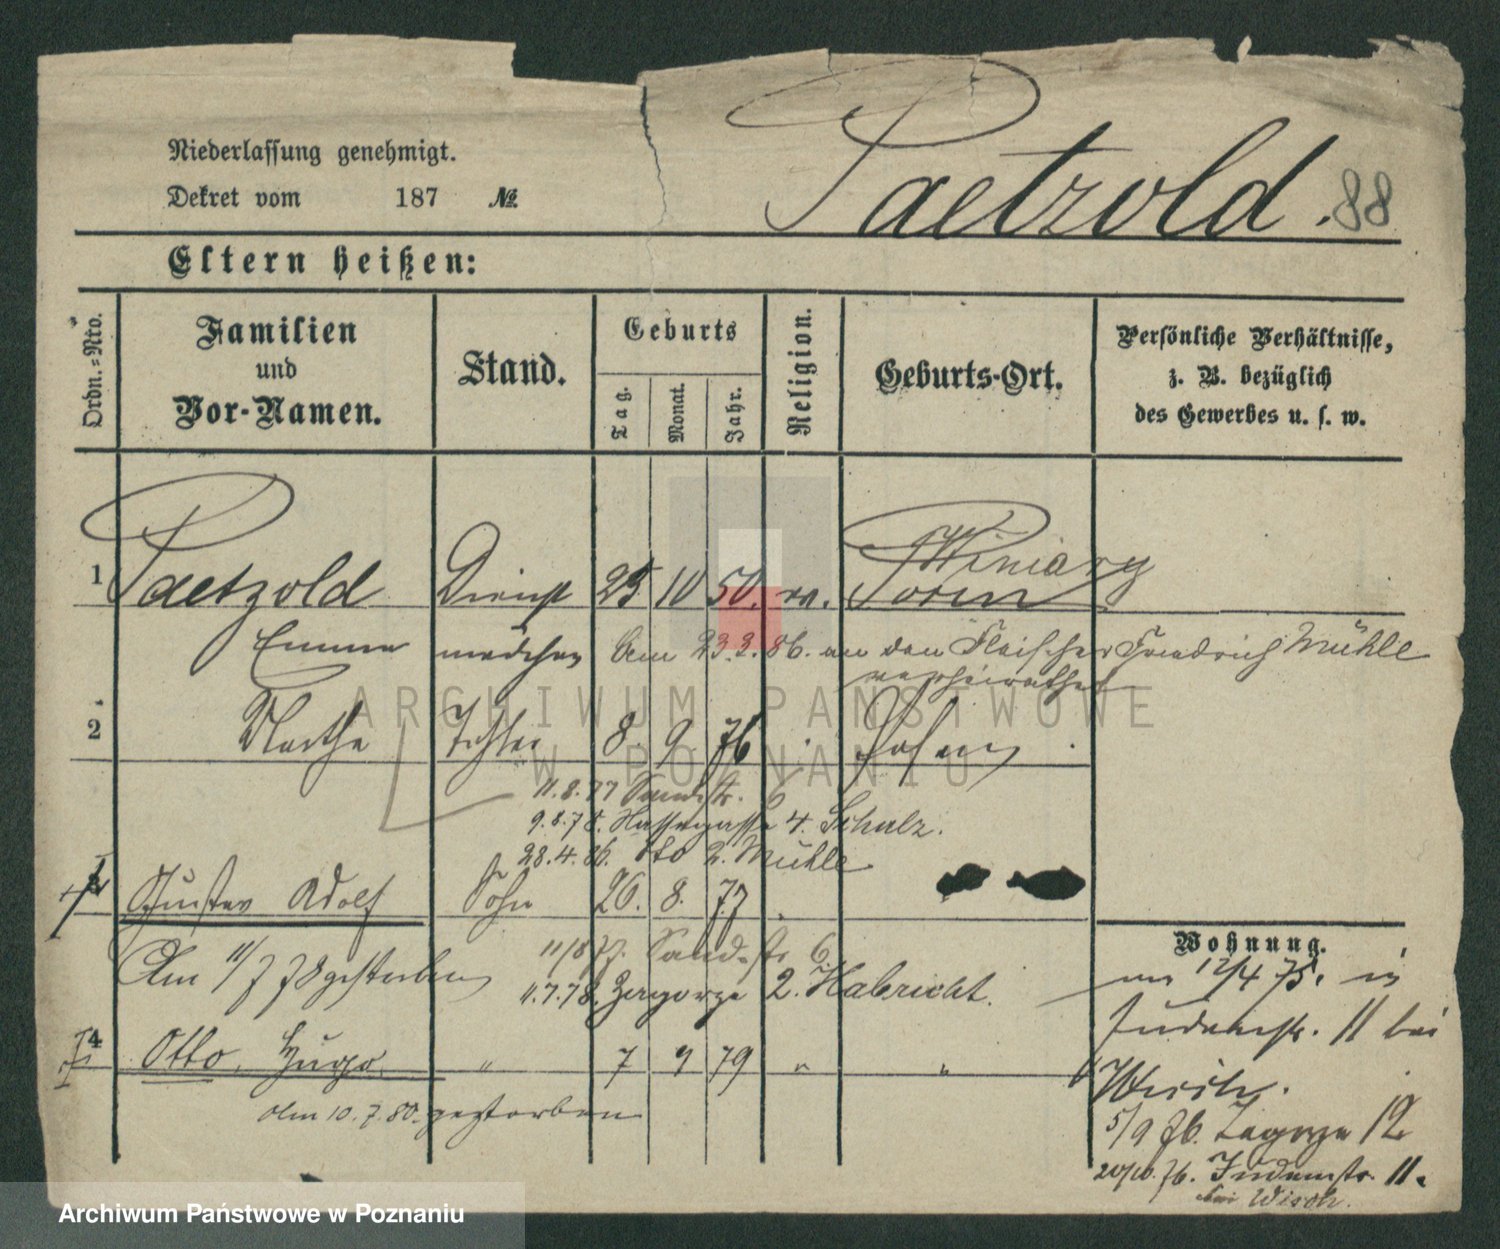 Niederlassung genehmigt.
Dekret vom 187 №.
Paetzold. 88
Eltern heißen:
Ordn.=Nro.
Familien
und
Vor-Namen.
Stand.
Geburts
Tag.
Monat.
Jahr.
Religion.
Geburts-Ort.
Persönliche Verhältnisse,
z. B. bezüglich
des Gewerbes u. s. w.
Winiary
1 Paetzold Dienst 25 10 50. ev. Posen
Emma mädchen Am 23.2.86. an den Fleischer Friedrich Mühle
verheirathet
2 Martha Tochter 8 9 76 Posen
11.8.77 Sandstr. 6
9.8.78. Wassergasse 4. Schulz.
28.4.86. Otto 2. Mühle
† 3 Gustav Adolf Sohn 26. 8. 77
Am 11/7 78 gestorben
11/8 77. Sandstr 6.
11.7.78. Zagorze 2. Habricht.
† 4 Otto, Hugo. " 7 9 79 " "
Am 10.7.80. gestorben
Wohnung.
am 12/4 75. in
Judenstr. 11 bei
5/9 76. Zagorze 12
20/10.76. Judenstr. 11.
bei
ARCHIWUM PAŃSTWOWE
W POZNANIU
Archiwum Państwowe w Poznaniu